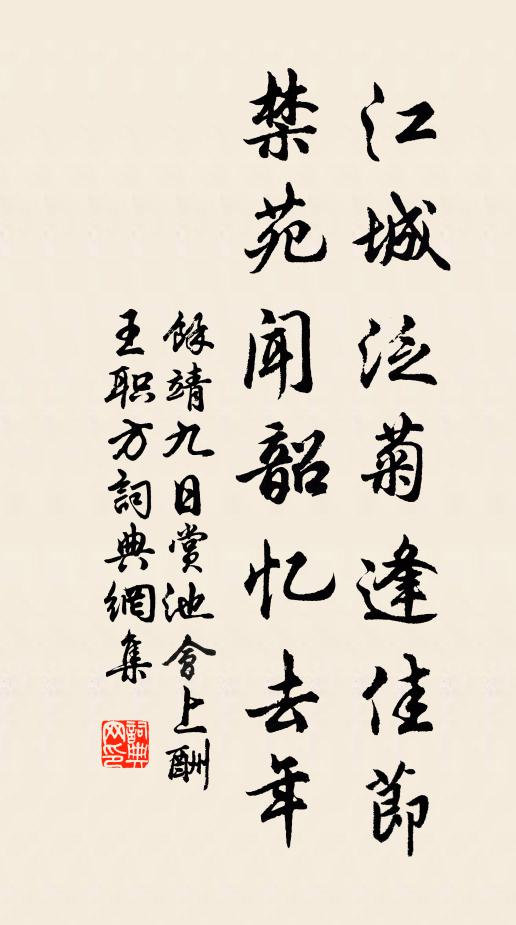 江城泛菊逢佳節
禁苑闻韶忆去年
餘靖九日賞池會上酬
王职方詞典網集
詞典网印